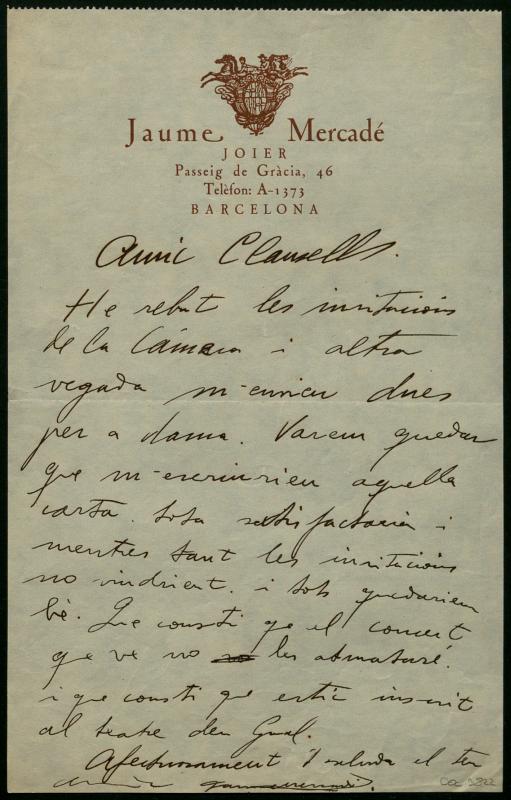 Jaume Mercadé
JOIER
Passeig de Gràcia, 46
Telèfon: A-1373
BARCELONA
Amic Clausells.
He rebut les invitacions
de la Cámara i altra
vegada m'envieu dues
per a dama. Varem quedar
que m'escriurieu aquella
carta tota satisfactoria i
mentres tant les invitacions
no vindrient. i tots quedariem
bè. Que consti qe el concert
que ve no les
i que consti que estic inscrit
al teatre den Gual.
Afectuosament t saluda el teu
amic